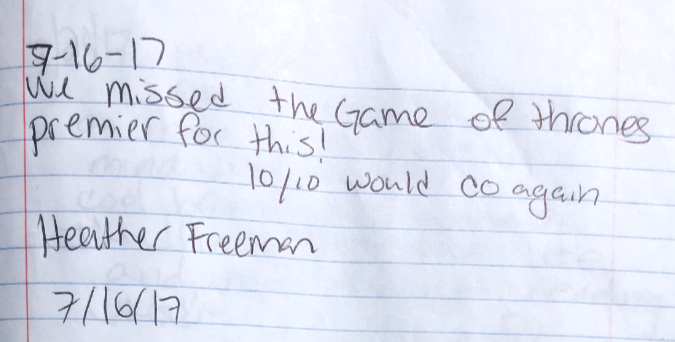 7-16-17
We missed the Game of thrones
premier for this!
10/10 would do again
Heather Freeman
7/16/17